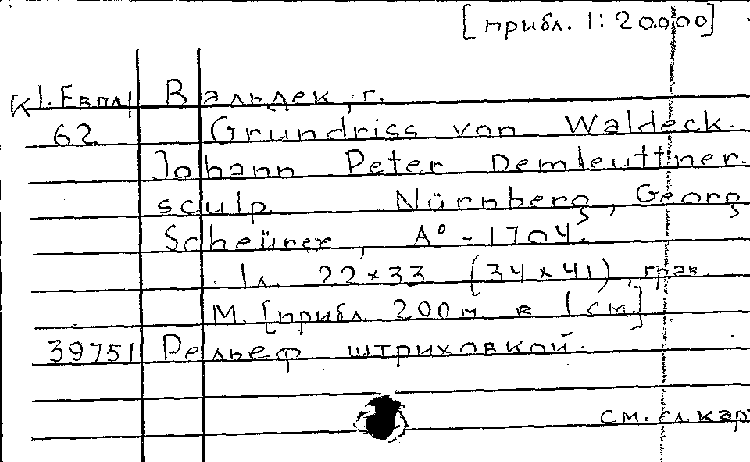 [прибл. 1:20000]
К 1. Евпл Вальдек, г.
62 Grundriss von Waldeck.
Johann Peter Demleuttner
sculp Nürnberg, Georg
Scheürer, A° - 1704.
1 л. 22 × 33 (34 × 41), грав.
М. [прибл 200 м в 1 см]
39751 Рельеф штриховкой.
см. сл. кар